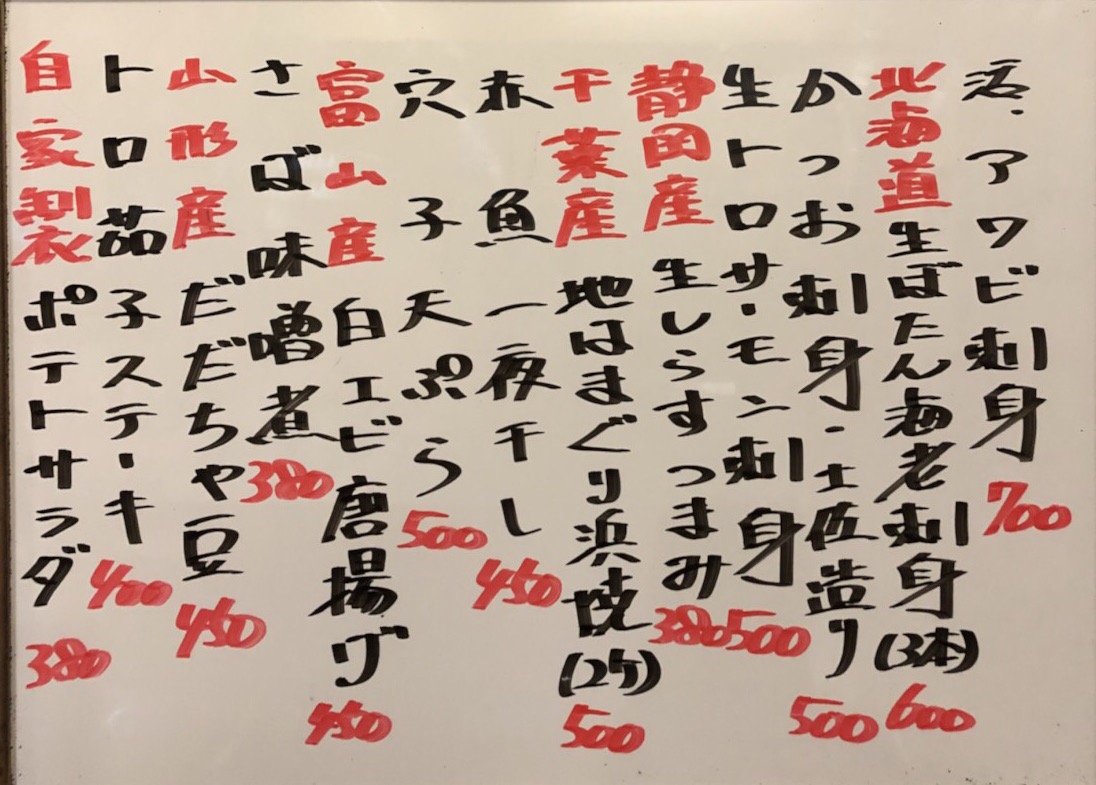 活・アワビ刺身 700
北海道生ぼたん海老刺身(3本) 600
かつお刺身・土佐造り 500
生トロサーモン刺身 500
静岡産生しらすつまみ 380
千葉産地はまぐり浜焼(2ケ) 500
赤魚一夜干し 450
穴子天ぷら 500
富山産白エビ唐揚げ 450
さば味噌煮 380
山形産だだちゃ豆 450
トロ茄子ステーキ 400
自家製ポテトサラダ 380